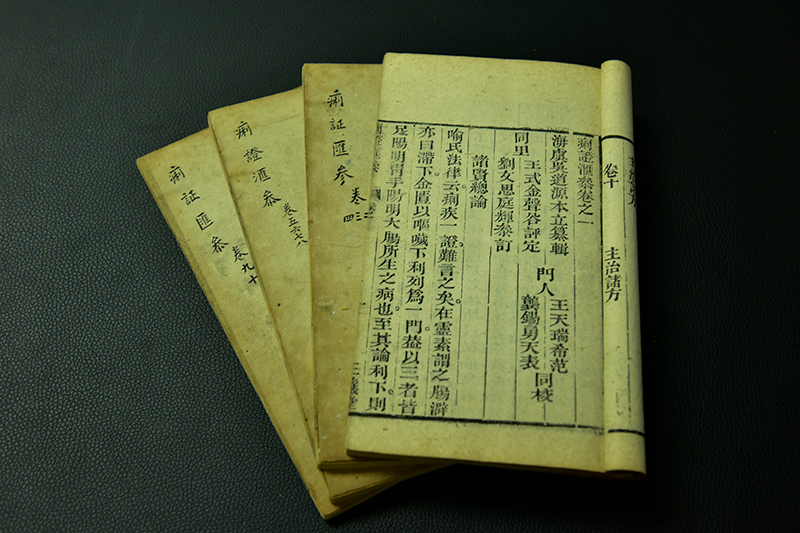 痢證滙叅卷之一
海虞吳道源本立纂輯
同里
王式金聲谷評定
劉文思庭輝叅訂
門人
王天瑞希范
龔錫勇天表
同校
諸賢總論
喻氏法律云痢疾一證難言之矣在靈素謂之腸澼
亦曰滯下金匱以嘔噦下利列爲一門葢以三者皆
足陽明胃手陽明大腸所生之病也至其論利下則
卷十
主治諸方
痢証匯參
卷二三四
痢證滙叅
卷五六七八
痢証匯叅
卷九十